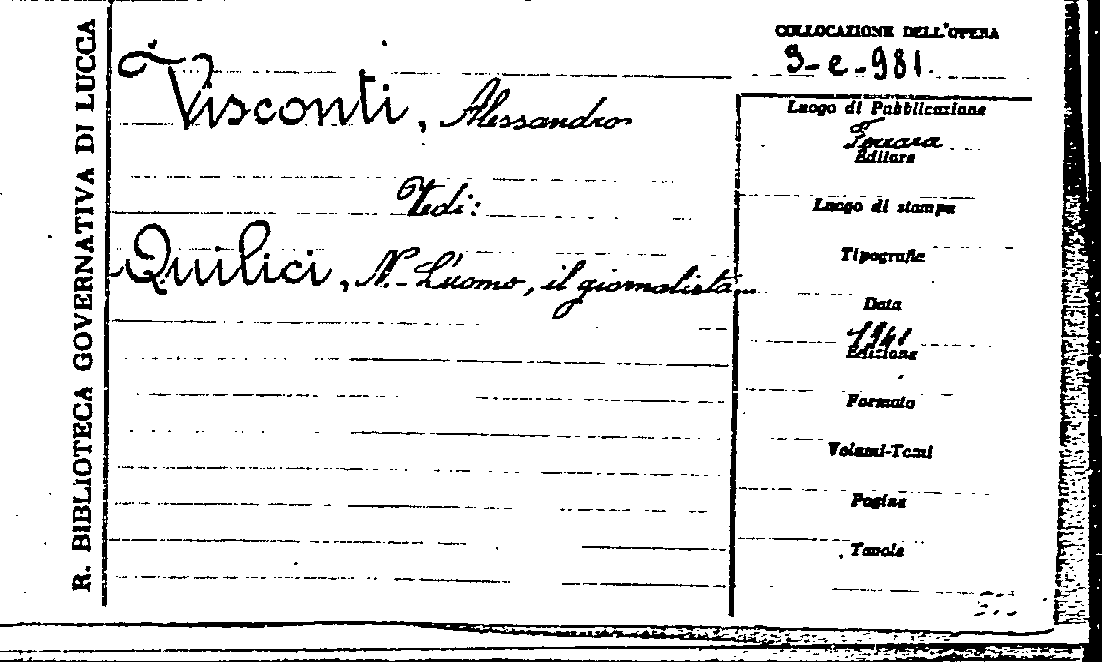 R. BIBLIOTECA GOVERNATIVA DI LUCCA
Visconti, Alessandro
Vedi:
Quilici, N. - L'uomo, il giornalista...
COLLOCAZIONE DELL'OPERA
3-e-981.
Luogo di Pubblicazione
Ferrara
Editore
Luogo di stampa
Tipografia
Data
1941
Edizione
Formato
Volumi-Tomi
Pagine
Tavole